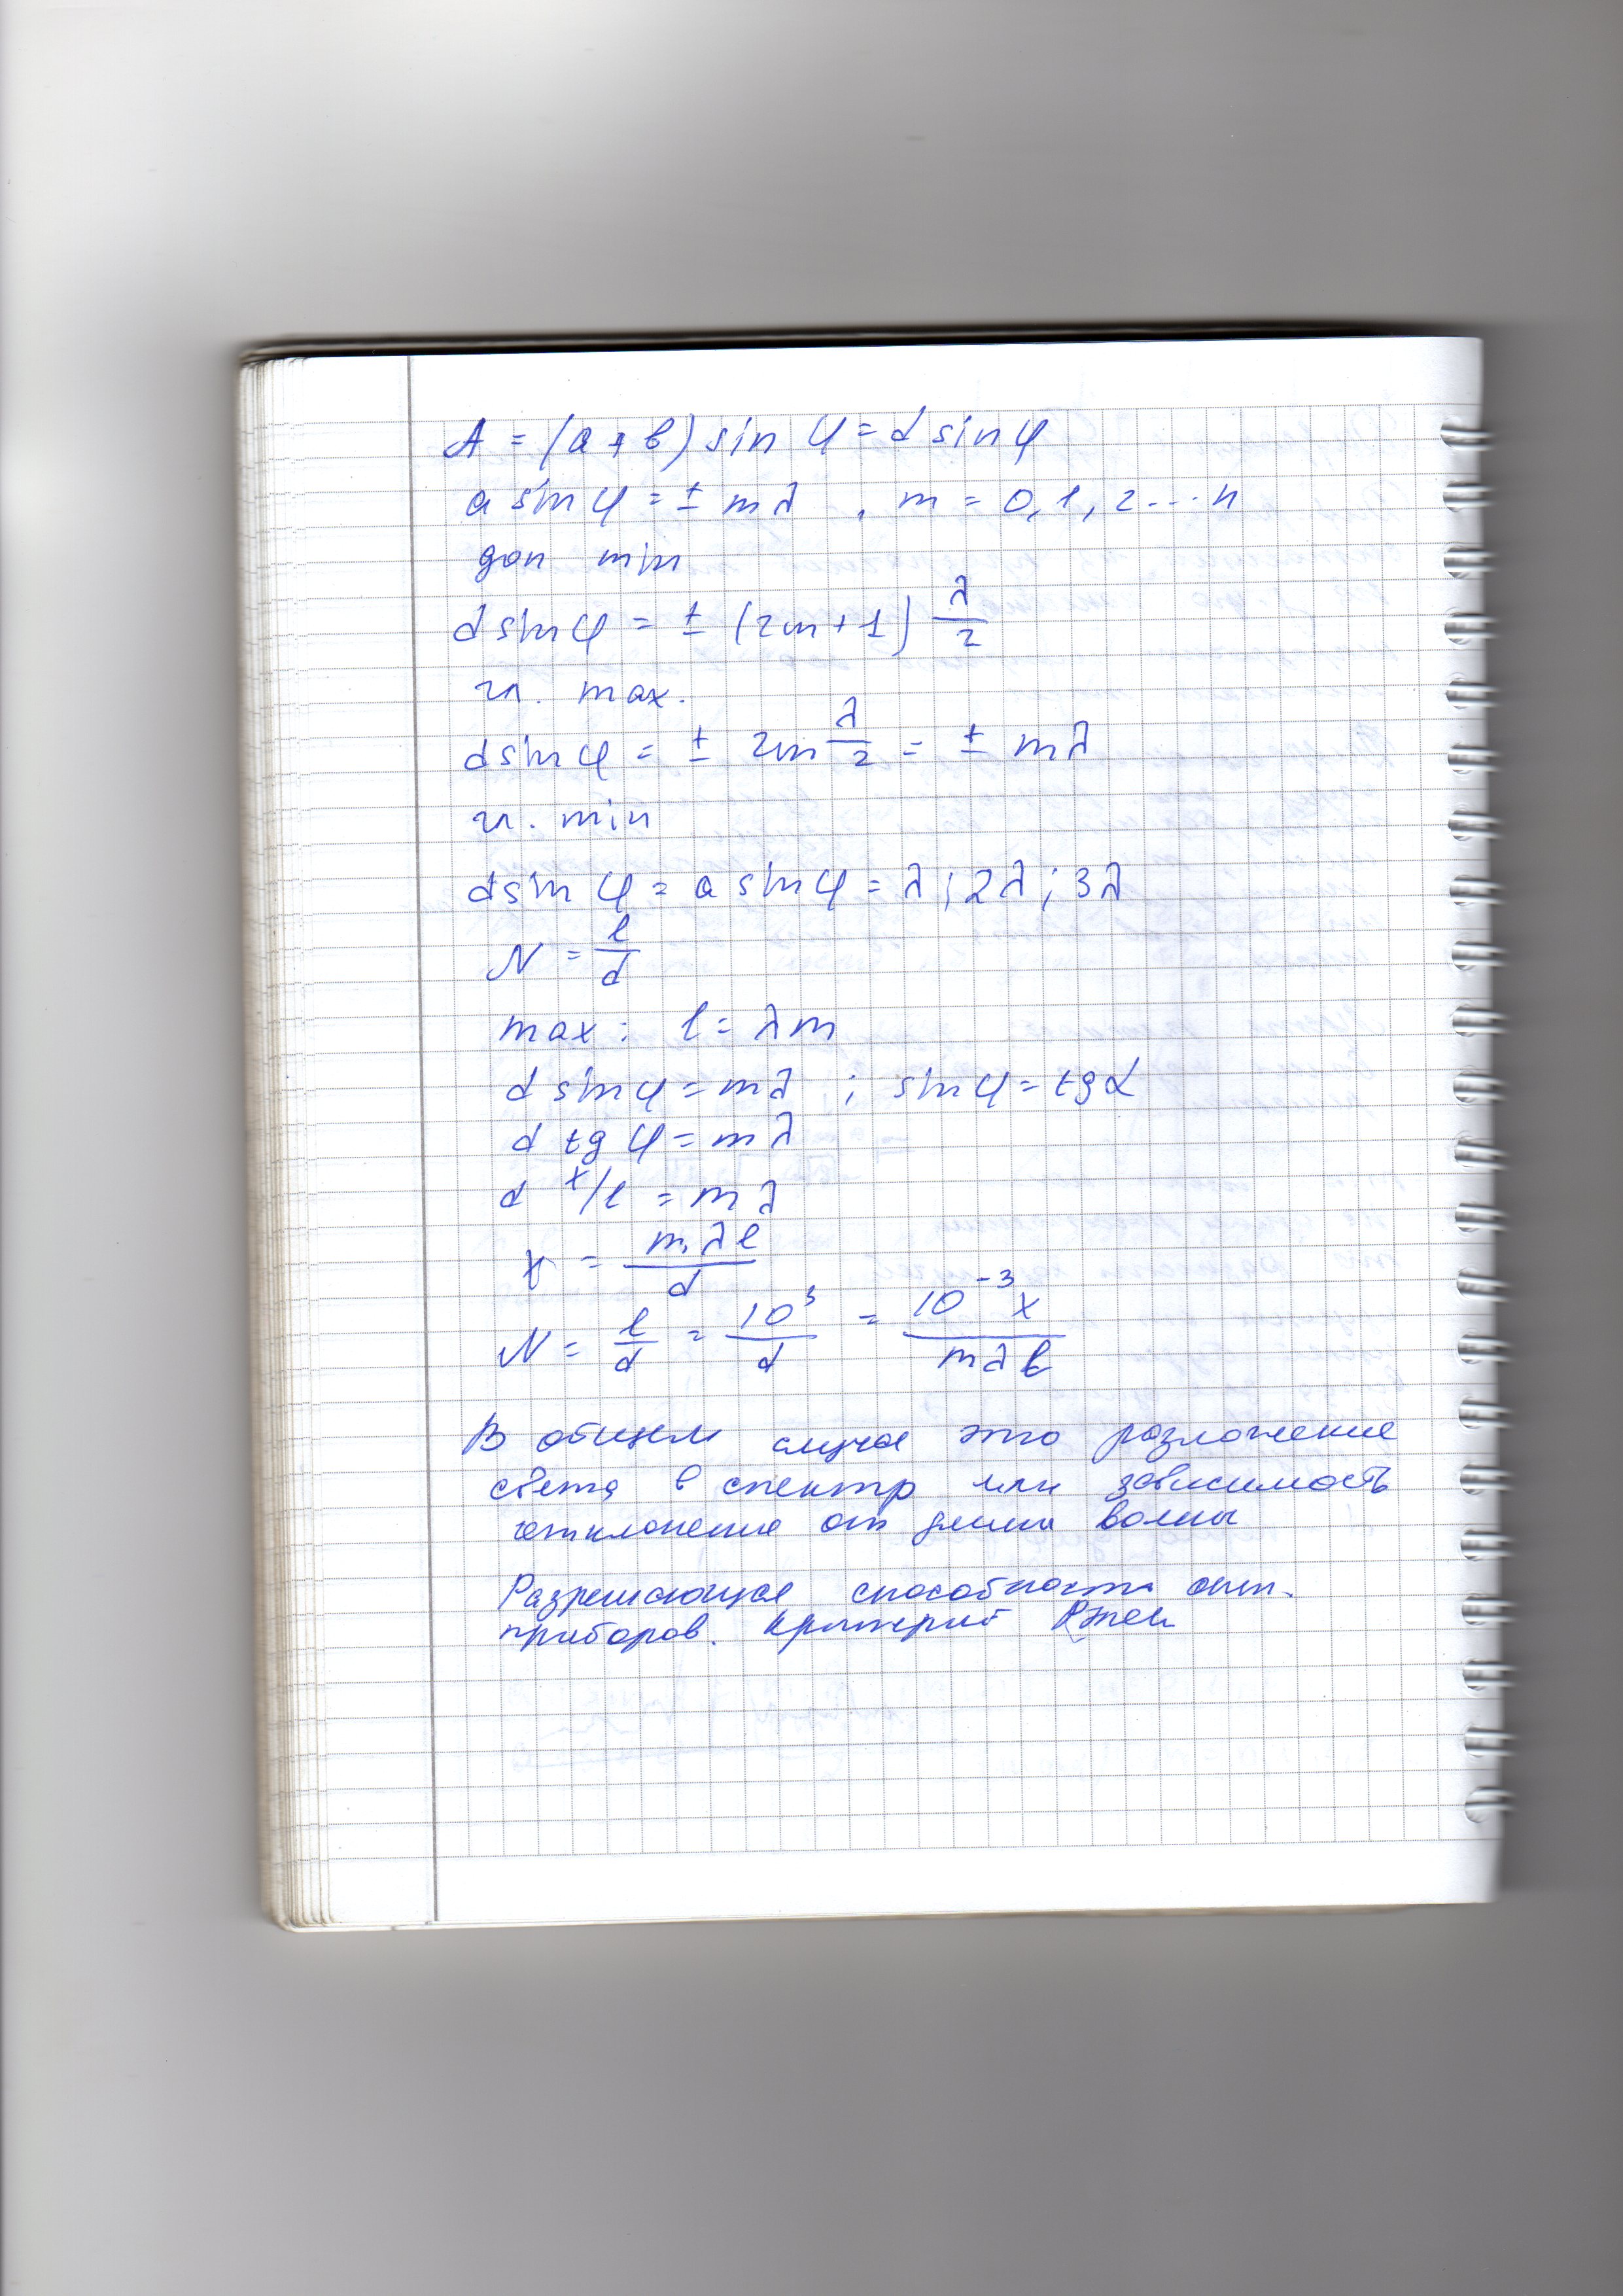 A = (a + в) sin φ = d sin φ
a sin φ = ± mλ , m = 0, 1, 2 ... n
доп min
d sin φ = ± (2m + 1) λ/2
гл. max.
d sin φ = ± 2m λ/2 = ± mλ
гл. min
d sin φ = a sin φ = λ ; 2λ ; 3λ
N = l/d
max : l = λm
d sin φ = mλ ; sin φ = tg α
d tg φ = mλ
d x/l = mλ
x = mλl/d
N = l/d = 10³/d = 10⁻³x/mλl
В общем случае это разложение
света в спектр или зависимость
отклонения от длины волны
Разрешающая способность опт.
приборов. Критерий